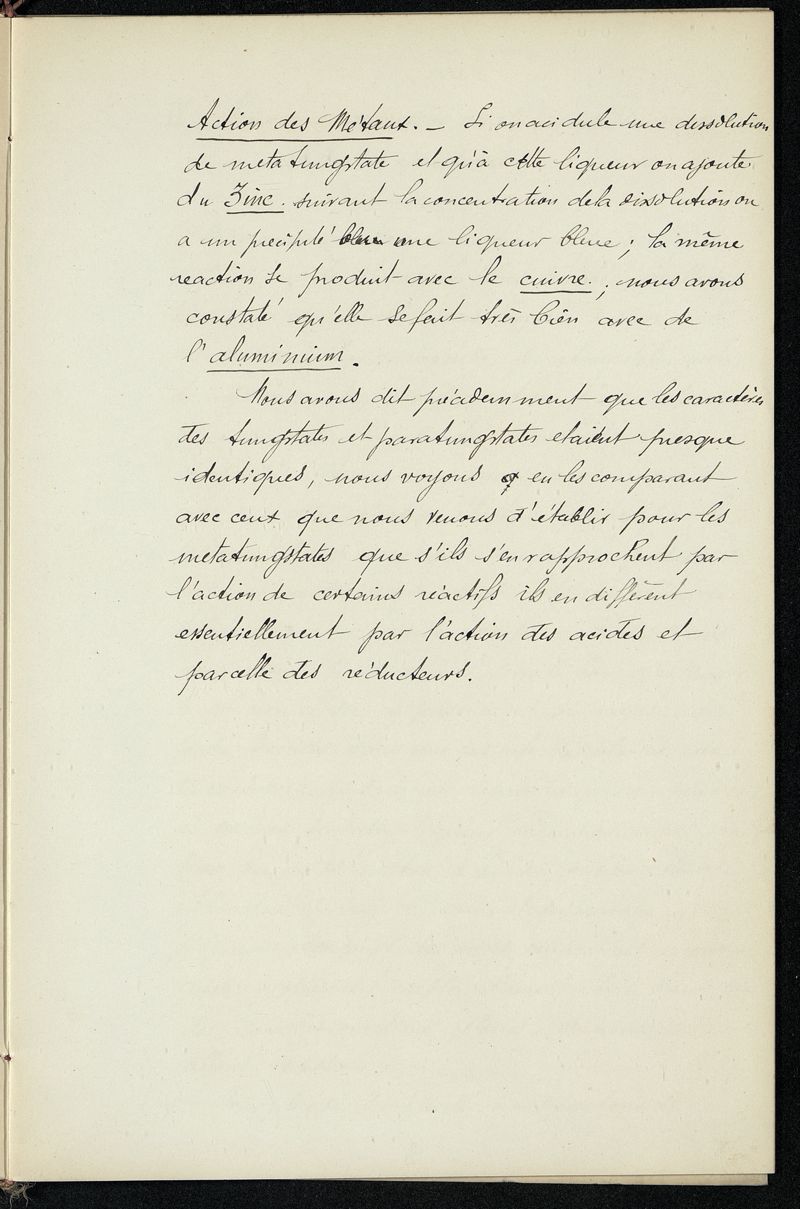 Action des Métaux. — Si on acidule une dissolution
de metatungstate et qu'à cette liqueur on ajoute
du Zinc. suivant la concentration de la dissolution on
a un précipité bleu une liqueur bleue ; la même
reaction se produit avec le cuivre. ; nous avons
constaté qu'elle se fait très bien avec de
l'aluminium.
Nous avons dit précédemment que les caractères
des tungstates et paratungstates etaient presque
identiques, nous voyons en les comparant
avec ceux que nous venons d'établir pour les
metatungstates que s'ils s'en rapprochent par
l'action de certains réactifs ils en diffèrent
essentiellement par l'action des acides et
par celle des réducteurs.